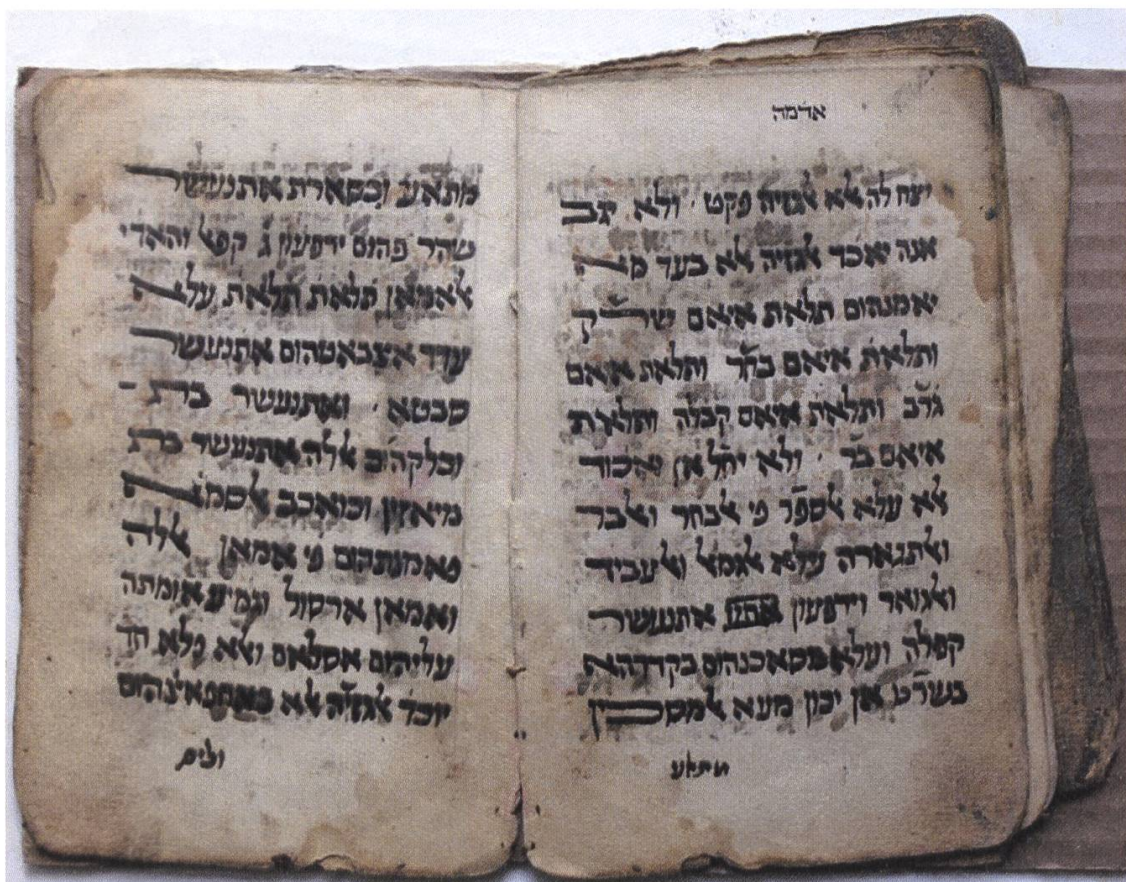 אדמה
יצח לה ﭏא ﭏגזיה פקט ׳ ולא יגב
אנה יאכד ﭏגזיה ﭏא בעד מא
יאמנהום תלאת איאם שרק
ותלאת איאם בחר ותלאת איאם
גרב ותלאת איאם קבלה ותלאת
איאם בר ׳ ולא יחל אן יאכוד
ﭏא עלא ﭏספר פי ﭏבחר וﭏבר
וﭏתגארה עלא ﭏגמﭏ וﭏעביד
וﭏגואר וידפעון אתנעשר
קפלה ועלא מסאכנהום בקדרהא
בשרט אן יכון מעא ﭏמסכין
מתאע
מתאע וכסארת אתנעשר
שהר פהום ידפעון ג קפﭏ והאדי
ﭏאמאן תלאת תלאת עלא
עדד אצבאטהום אתנעשר
סבטא ׳ ואתנעשר ברג
וכלקהום ﭏלה אתנעשר ברג
מיאזין וכואכב ﭏסמא
פאמנתהום פי אמאן ﭏלה
ואמאן ארסול וגמיע אומתה
עליהום אסלאם וﭏא פלא חד
יוכד ﭏגזיה ﭏא